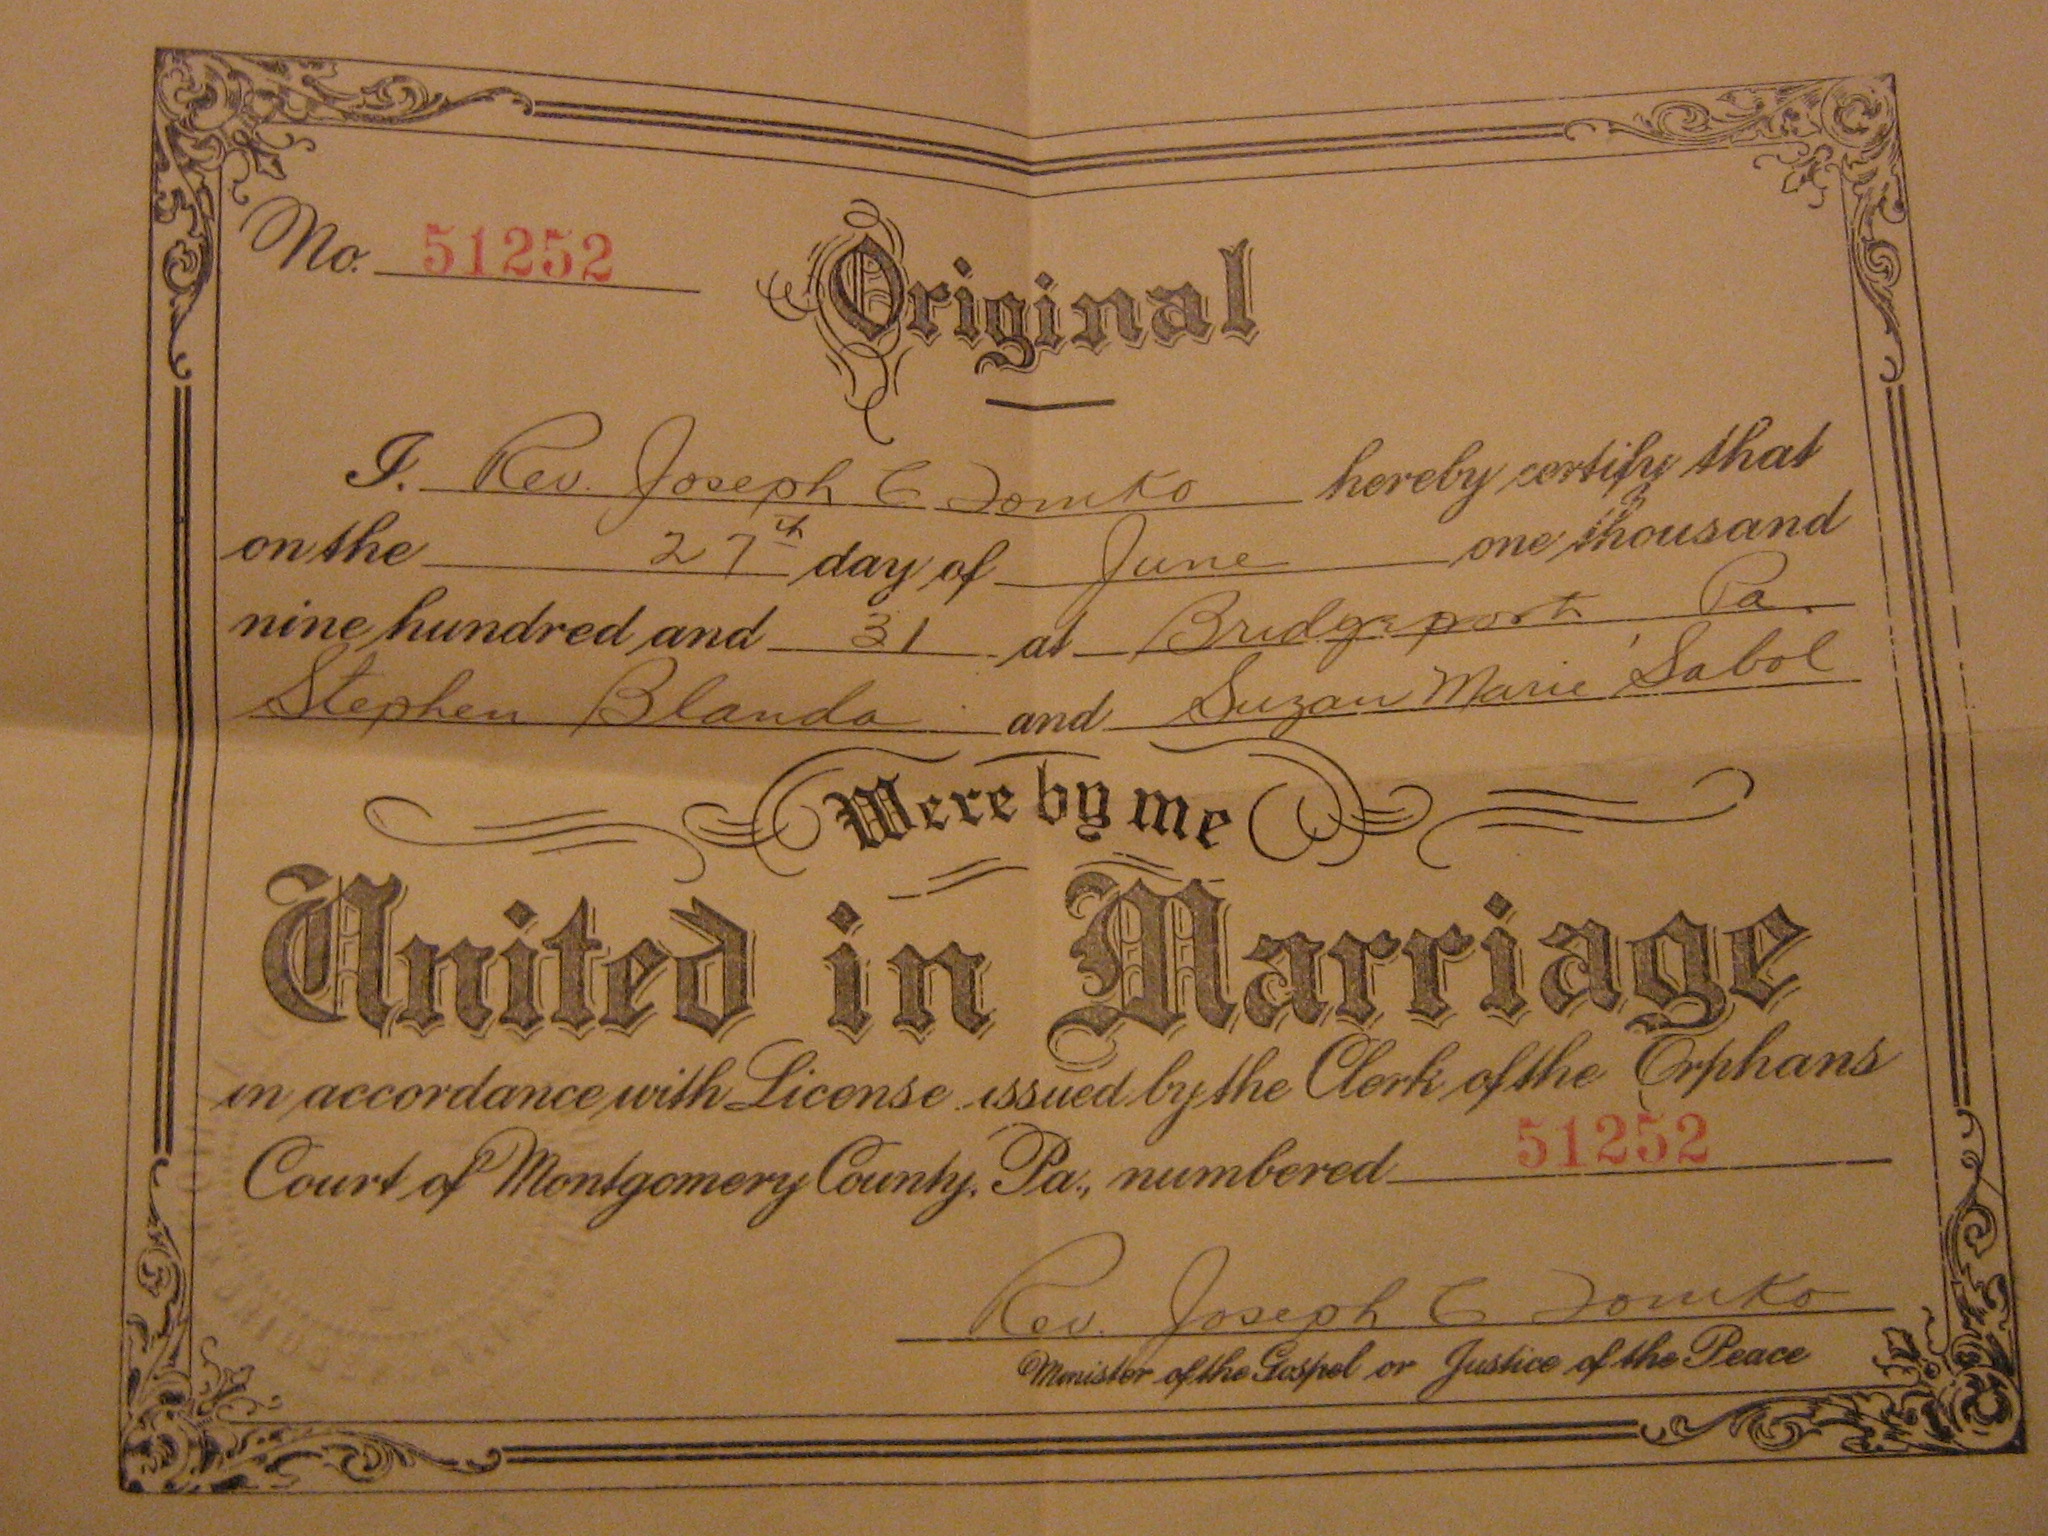 No. 51252
Original
I. Rev. Joseph C Tomko hereby certify that
on the 27th day of June one thousand
nine hundred and 31 at Bridgeport Pa.
Stephen Blanda and Suzan Marie Sabol
Were by me
United in Marriage
in accordance with License issued by the Clerk of the Orphans
Court of Montgomery County, Pa., numbered 51252
Rev. Joseph C Tomko
Minister of the Gospel or Justice of the Peace